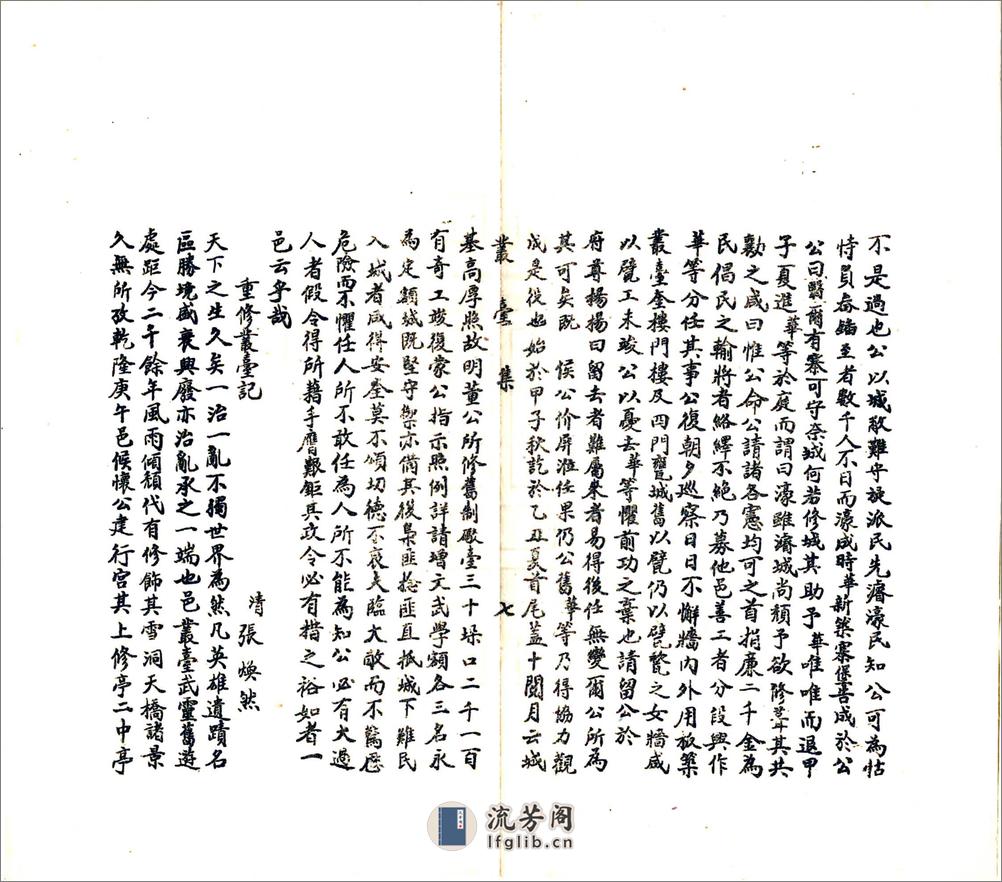 不是過也公以城敝難守旋派民先濬濠民知公可為怙
恃負畚鍤至者數千人不日而濠成時華新築寨堡告成於公
公曰噫爾有寨可守奈城何若修城其助予華唯唯而退甲
子夏進華等於庭而謂曰濠雖濬城尚頹予欲修葺其共
勷之咸曰惟公命公請諸各憲均可之首捐廉二千金為
民倡民之輸將者絡繹不絕乃募他邑善工者分段興作
華等分任其事公復朝夕巡察日日不懈牆內外用板築
叢臺奎樓門樓及四門甕城舊以甓仍以甓甃之女牆咸
以甓工未竣公以憂去華等懼前功之棄也請留公於
府尊揚揚曰留去者難屬來者易得後任無變爾公所為
其可矣既 侯公价屏涖任果仍公舊華等乃得協力觀
成是役也始於甲子秋訖於乙丑夏首尾蓋十閱月云城
叢臺集 七
基高厚照故明董公所修舊制敵臺三十垛口二千一百
有奇工竣復蒙公指示照例詳請增文武學額各三名永
為定額城既堅守禦亦備其後梟匪捻匪直抵城下難民
入城者咸得安全莫不頌切德不衰夫臨大敵而不驚歷
危險而不懼任人所不敢任為人所不能為知公必有大過
人者假令得所藉手膺艱鉅其政令必有措之裕如者一
邑云乎哉
重修叢臺記 清 張煥然
天下之生久矣一治一亂不獨世界為然凡英雄遺蹟名
區勝境盛衰興廢亦治亂承之一端也邑叢臺武靈舊遊
處距今二千餘年風雨傾頹代有修飾其雪洞天橋諸景
久無所攷乾隆庚午邑候懷公建行宮其上修亭二中亭
流芳阁
lfglib.cn